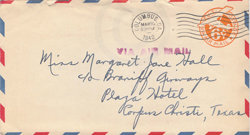 COLUMBUS, GA.
1945
VIA AIR MAIL
6¢
Miss Margaret Jane Hall
c/o Braniff Airways
Plaza Hotel
Corpus Christi, Texas